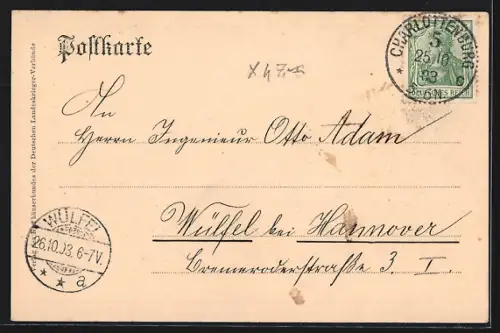 Postkarte
CHARLOTTENBURG
5
25.10
03
5-6N.
DEUTSCHES REICH
An
Herrn Ingenieur Otto Adam
Wülfel bei Hannover
Bremeroderstraße 3. I.
WÜLFEL
26.10.03. 6-7V.
* * a
Kyffhäuserbundes der Deutschen Landeskrieger-Verbände